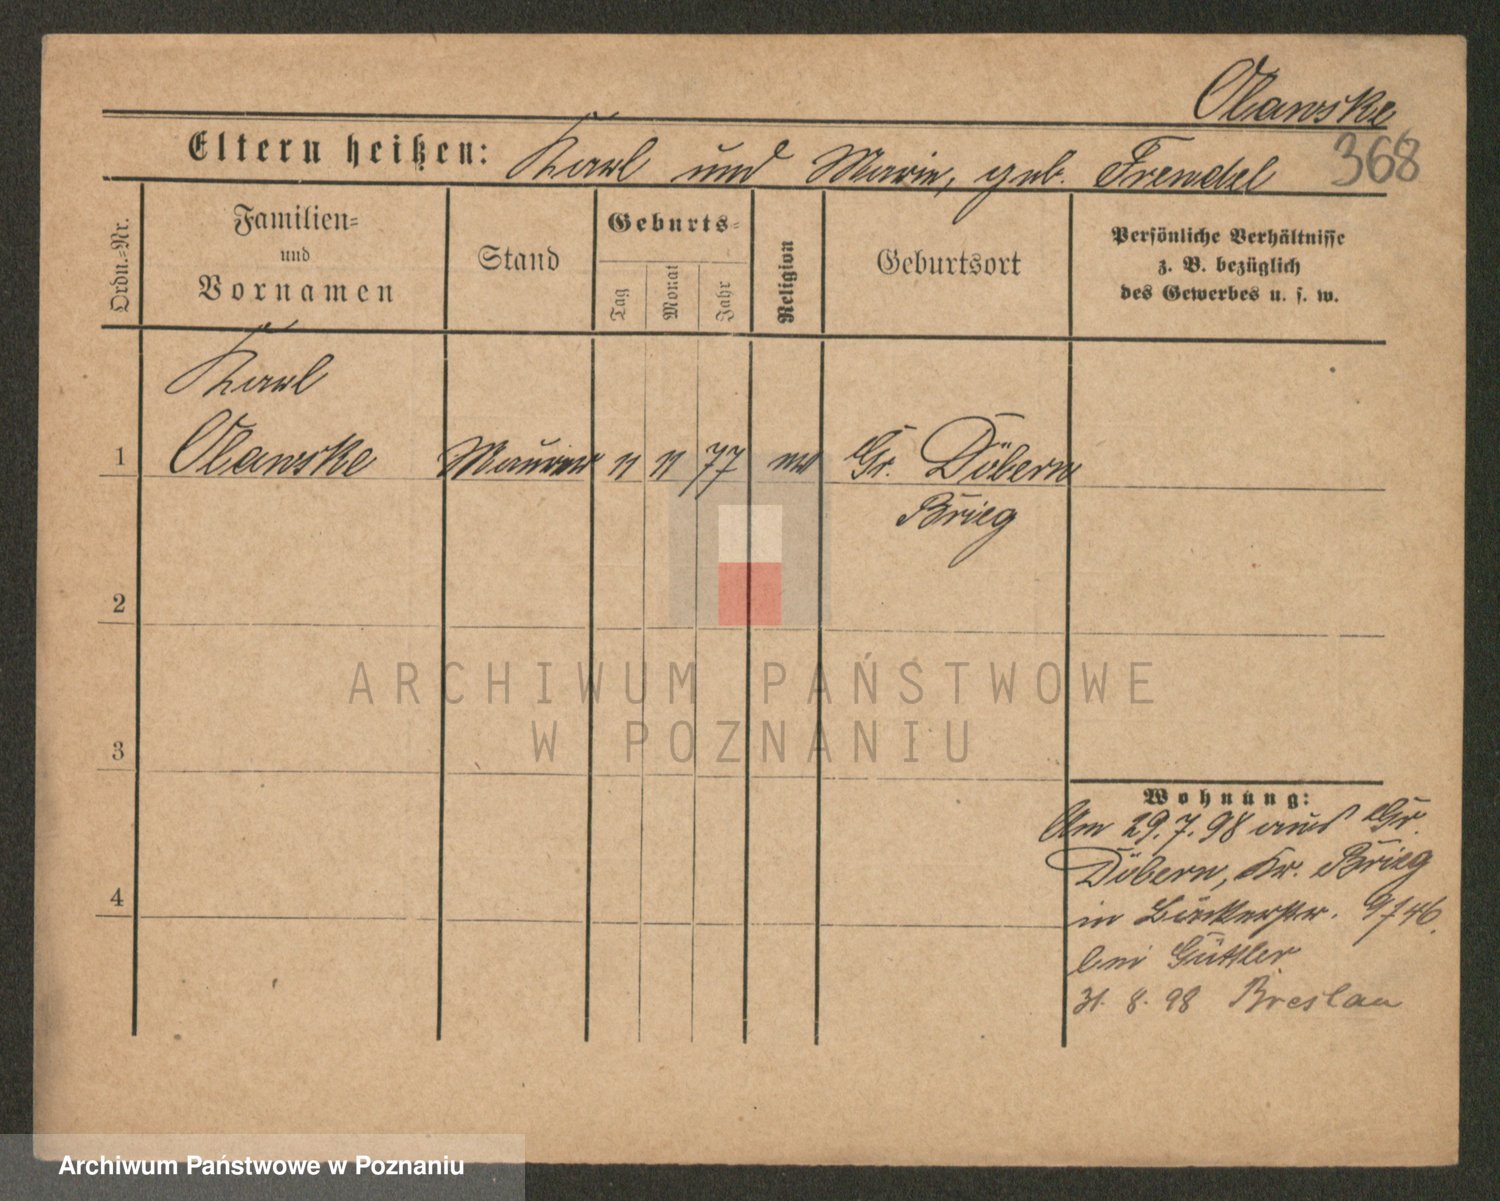 Olawske
368
Eltern heißen: Karl und Marie, geb. Frendel
Ordn.-Nr.
Familien-
und
Vornamen
Stand
Geburts-
Tag
Monat
Jahr
Religion
Geburtsort
Persönliche Verhältnisse
z. B. bezüglich
des Gewerbes u. s. w.
Karl
1 Olawske Maurer 11 11 77 ev Gr. Döbern
Brieg
2
3
4
Wohnung:
Am 29.7.98 aus Gr.
Döbern, Kr. Brieg
in Bäckerstr.
bei Güttler
31. 8. 98 Breslau
ARCHIWUM PAŃSTWOWE
W POZNANIU
Archiwum Państwowe w Poznaniu